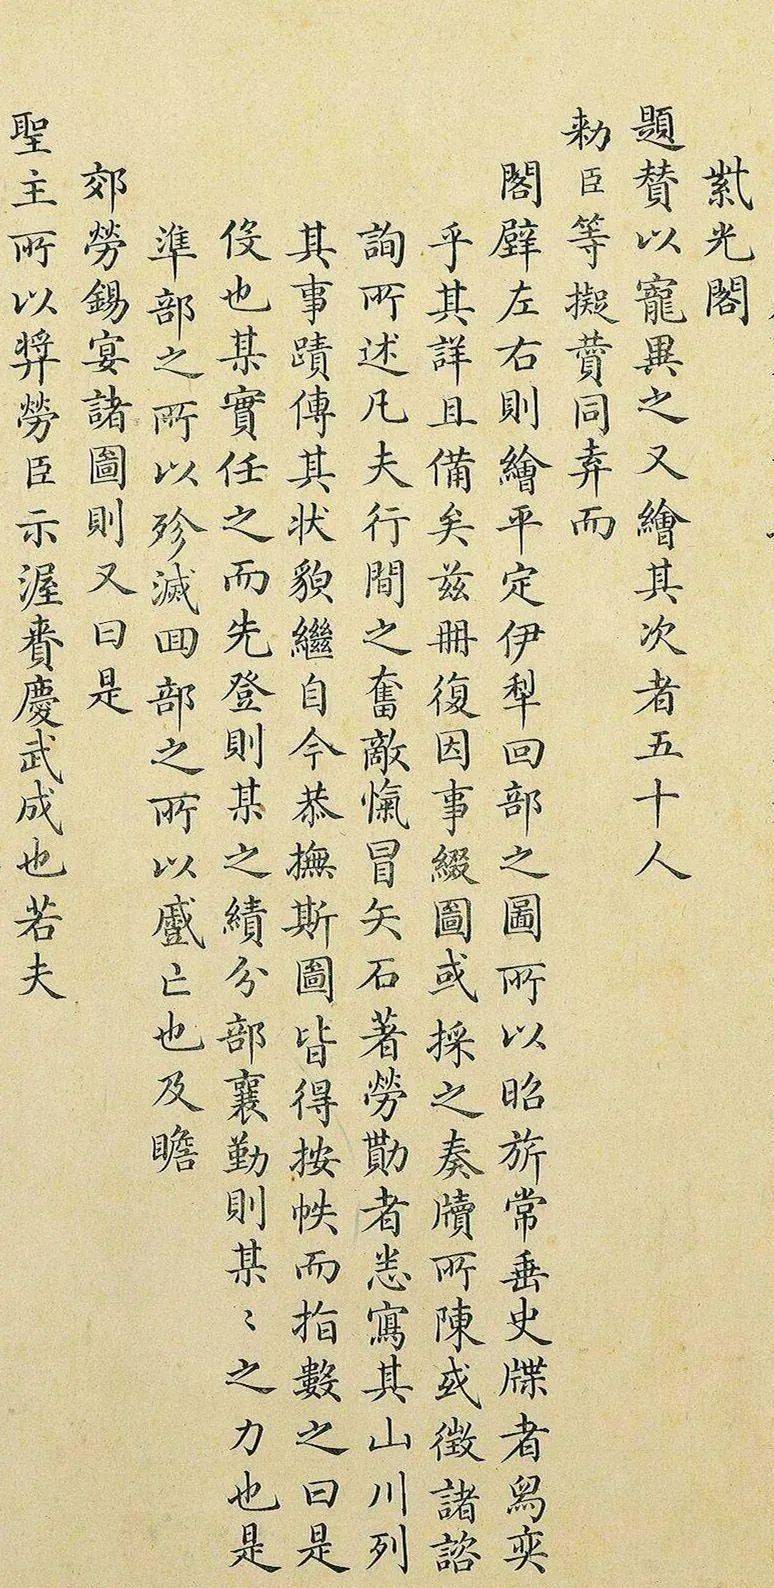 紫光閣
題贊以寵異之又繪其次者五十人
勅臣等擬贊同弆而
閣壁左右則繪平定伊犁回部之圖所以昭旂常垂史牒者舄奕
乎其詳且備矣兹冊復因事綴圖或採之奏牘所陳或徵諸諮
詢所述凡夫行間之奮敵愾冒矢石著勞勩者悉寫其山川列
其事蹟傳其狀貌繼自今恭撫斯圖皆得按帙而指數之曰是
役也某實任之而先登則某之績分部襄勤則某〻之力也是
準部之所以殄滅回部之所以蕆亡也及瞻
郊勞錫宴諸圖則又曰是
聖主所以奨勞臣示渥賚慶武成也若夫